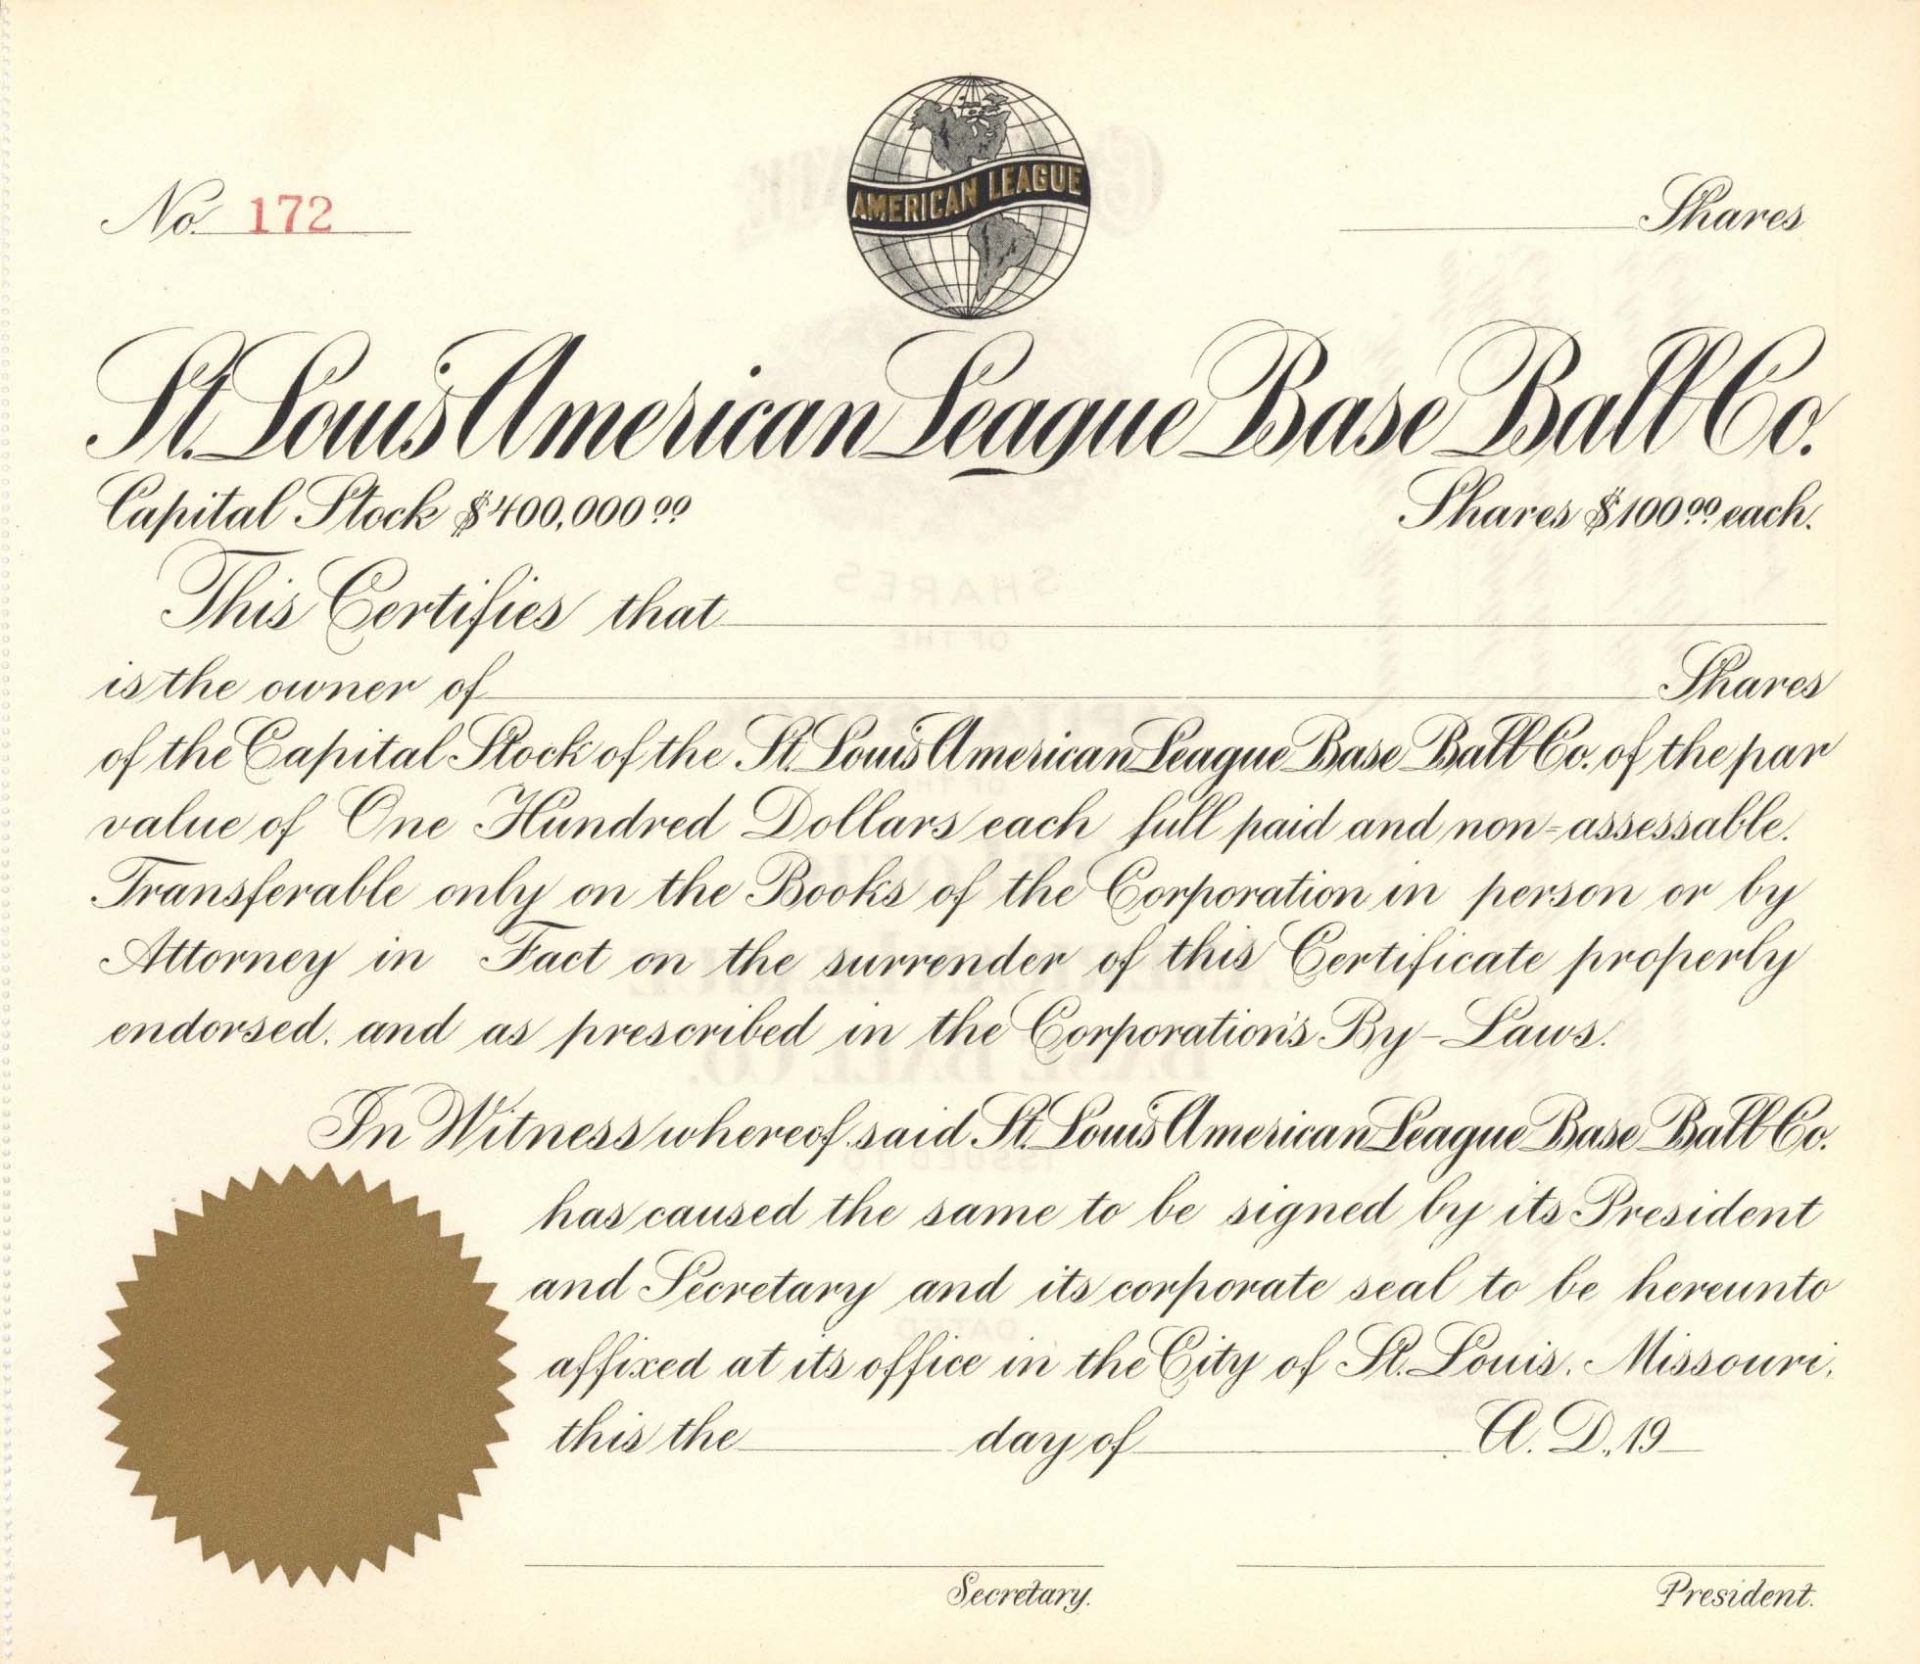 No. 172
AMERICAN LEAGUE
Shares
St. Louis American League Base Ball Co.
Capital Stock $400,000.00
Shares $100.00 each.
This Certifies that
is the owner of Shares
of the Capital Stock of the St. Louis American League Base Ball Co. of the par
value of One Hundred Dollars each full paid and non-assessable.
Transferable only on the Books of the Corporation in person or by
Attorney in Fact on the surrender of this Certificate properly
endorsed, and as prescribed in the Corporation's By-Laws.
In Witness whereof said St. Louis American League Base Ball Co.
has caused the same to be signed by its President
and Secretary and its corporate seal to be hereunto
affixed at its office in the City of St. Louis, Missouri,
this the day of A. D. 19
Secretary.
President.